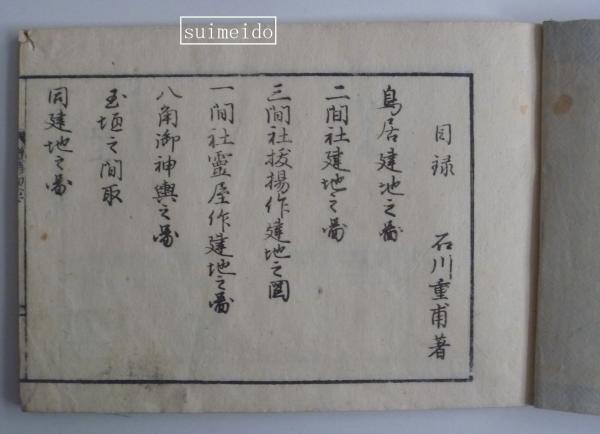 suimeido
目録　石川重甫著
鳥居建地之啚
二間社建地之啚
三間社拔揚作建地之図
一間社靈屋作建地之啚
八角御神輿之啚
玉垣之間取
同建地之啚